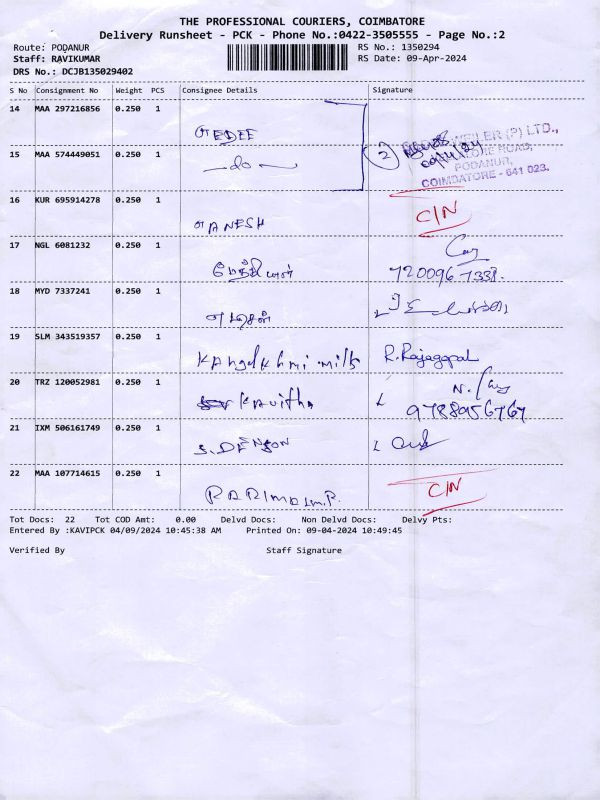 THE PROFESSIONAL COURIERS, COIMBATORE
Delivery Runsheet - PCK - Phone No.:0422-3505555 - Page No.:2
Route: PODANUR
RS No.: 1350294
Staff: RAVIKUMAR
RS Date: 09-Apr-2024
DRS No.: DCJB135029402
S No Consignment No Weight PCS Consignee Details Signature
14 MAA 297216856 0.250 1
15 MAA 574449051 0.250 1 -do-
2
PODANUR,
COIMBATORE - 641 023.
16 KUR 695914278 0.250 1
C/N
17 NGL 6081232 0.250 1
7200967338.
18 MYD 7337241 0.250 1
19 SLM 343519357 0.250 1
R.Rajagopal
20 TRZ 120052981 0.250 1
Kavitha
9788956767
21 IXM 506161749 0.250 1
S. DENSON
22 MAA 107714615 0.250 1
C/N
Tot Docs: 22 Tot COD Amt: 0.00 Delvd Docs: Non Delvd Docs: Delvy Pts:
Entered By :KAVIPCK 04/09/2024 10:45:38 AM Printed On: 09-04-2024 10:49:45
Verified By Staff Signature